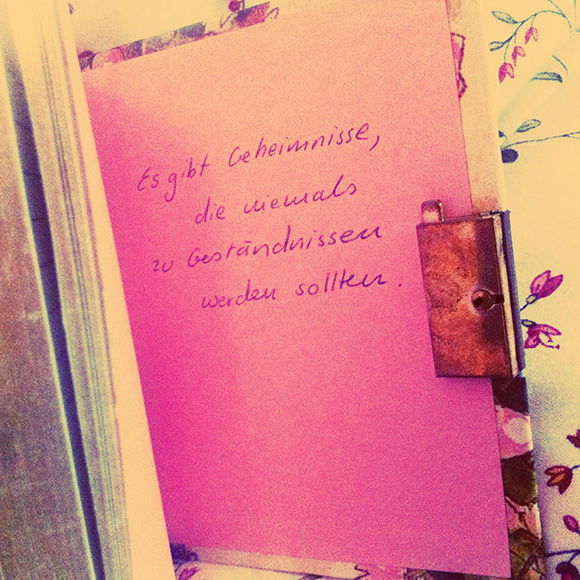 Es gibt Geheimnisse,
die niemals
zu Geständnissen
werden sollten.